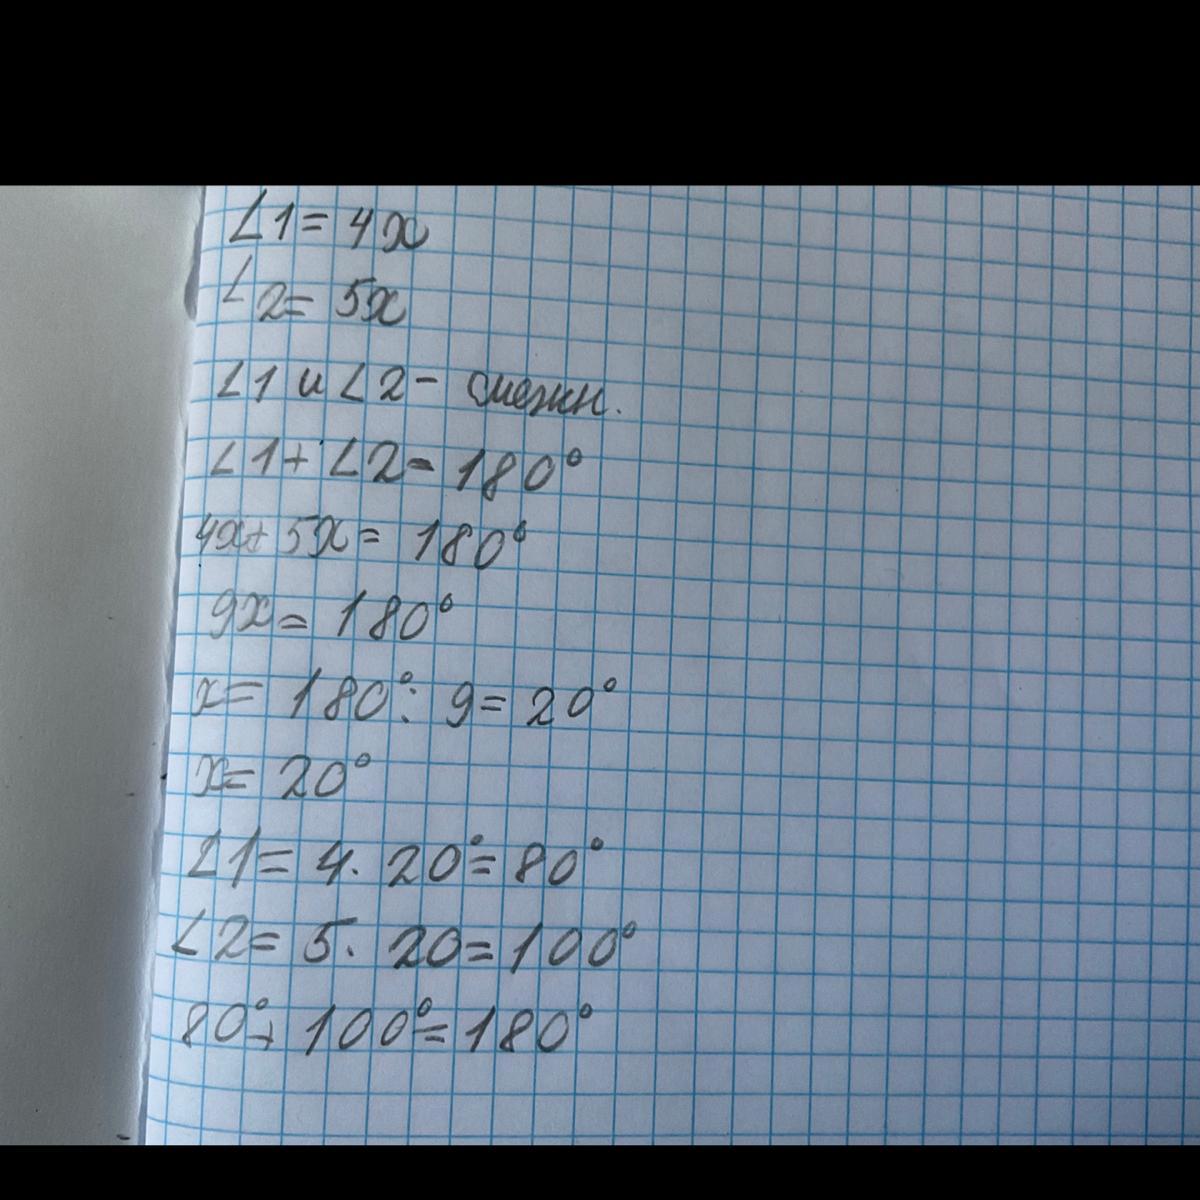 ∠1 = 4x
∠2 = 5x
∠1 и ∠2 - смежн.
∠1 + ∠2 = 180°
4x + 5x = 180°
9x = 180°
x = 180° : 9 = 20°
x = 20°
∠1 = 4 · 20° = 80°
∠2 = 5 · 20 = 100°
80° + 100° = 180°